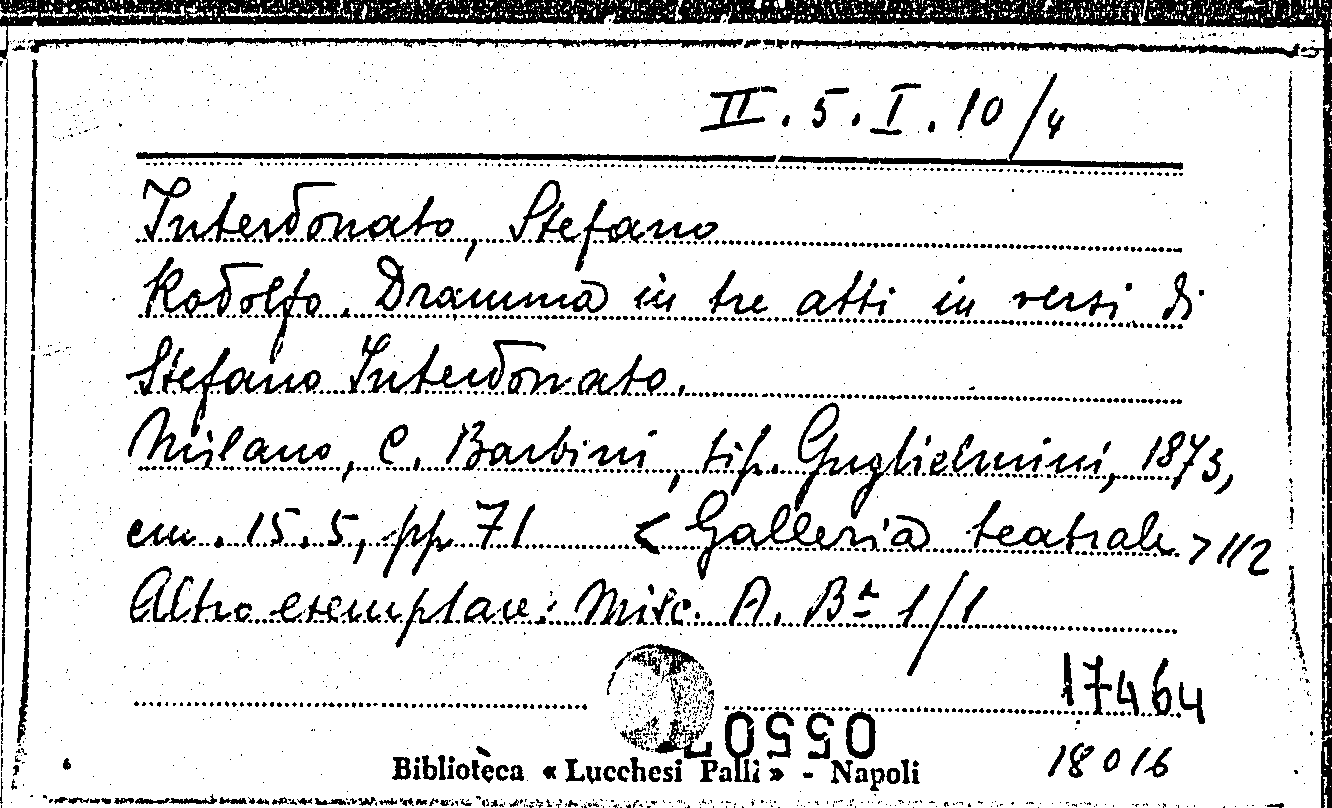 II.5.I.10/4
Interdonato, Stefano
Rodolfo. Dramma in tre atti in versi di
Stefano Interdonato.
Milano, C. Barbini, tip. Guglielmini, 1873,
cm. 15.5, pp 71 < Galleria teatrale > 112
Altro esemplare: Misc. A. Bª 1/1
17464
0550
Biblioteca « Lucchesi Palli » - Napoli
18016